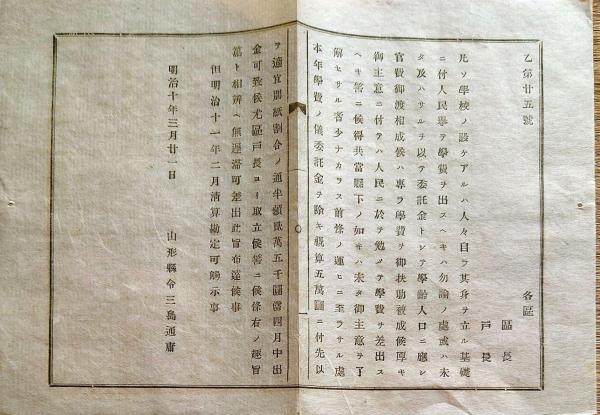 乙第廿五號
各區
區長
戸長
凡ソ學校ノ設ケアルハ人々自ラ其身ヲ立ル基礎
ニ付人民擧テ學費ヲ出スヘキハ勿論ノ處或ハ未
タ及ハサルヲ以テ委託金トシテ學齡人口ニ應シ
官費御渡相成候ハ專ラ學費ヲ御扶助被成候厚キ
御主意ニ付テハ人民ニ於テ勉メテ學費ヲ差出ス
ヘキ筈ニ候得共當縣下ノ如キハ未タ御主意ヲ了
解セサル者少ナカラス前條ノ運ヒニ至ラサル處
本年學費ノ儀委託金ヲ除キ概算五萬圓ニ付先以
テ適宜別紙割合ノ通半額貳萬五千圓當四月中出
金可致候尤區戸長ヨリ取立候筈ニ候條右ノ趣旨
篤ト相辨ヘ無遲滯可差出此旨布達候事
但明治十一年二月清算勘定可爲示事
明治十年三月廿一日
山形縣令三島通庸